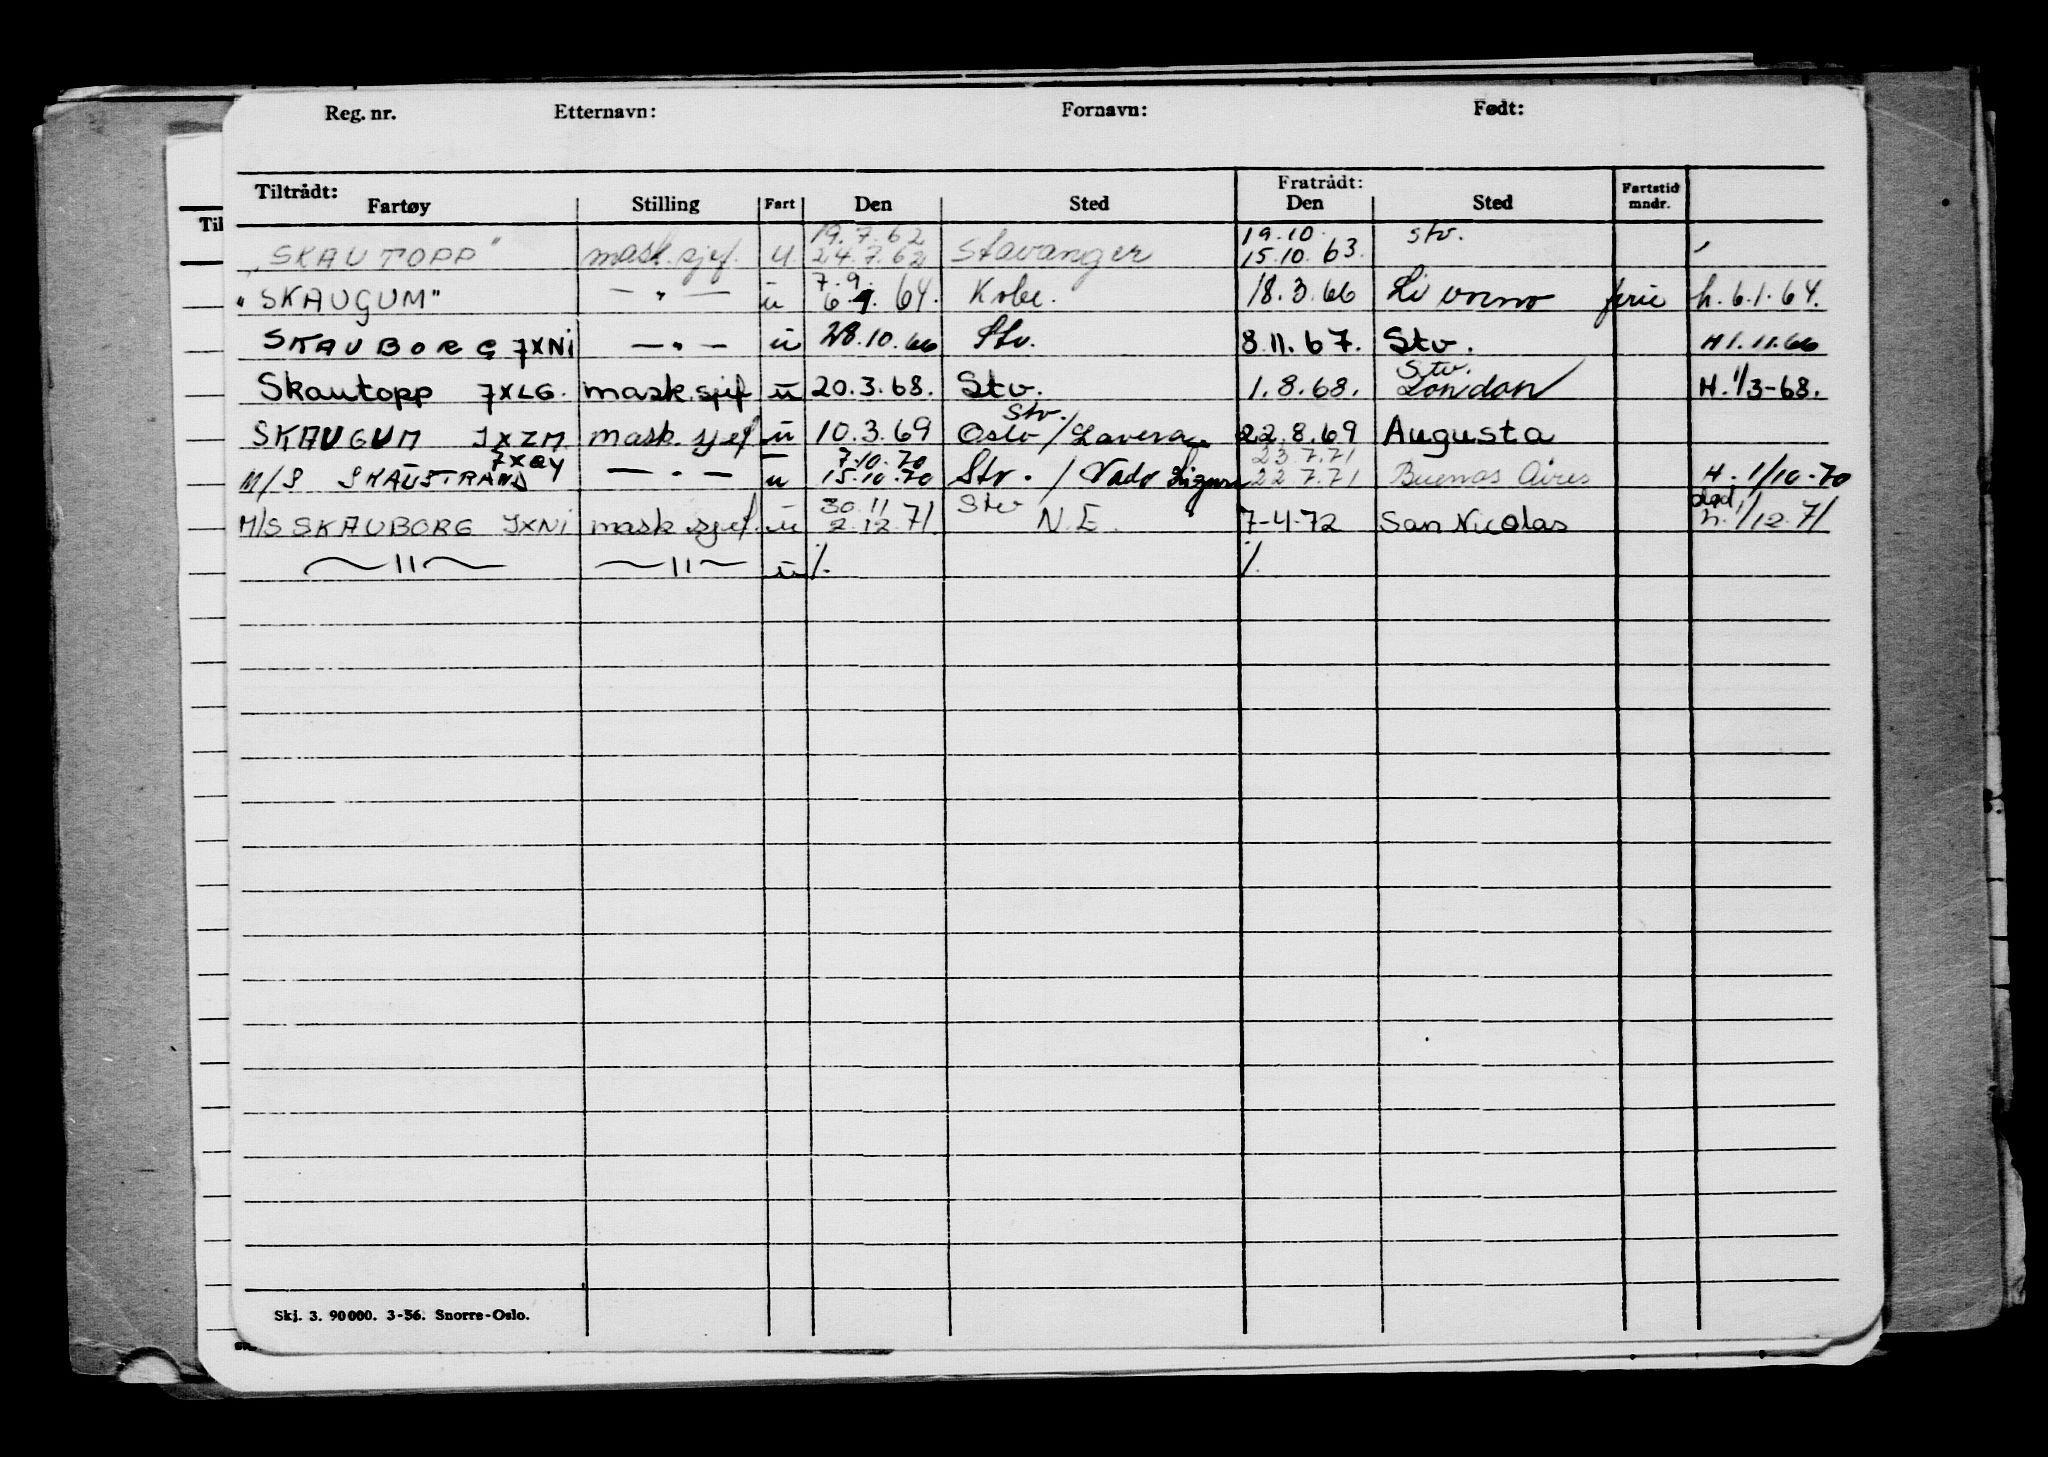 Reg. nr. Etternavn: Fornavn: Født:
Tiltrådt: Fratrådt:
Fartøy Stilling Fart Den Sted Den Sted Fartstid mndr.
Til
19.7.62 19.10. stv.
"SKAUTOPP" mask.sjef. u 24.7.62 Stavanger 15.10.63.
7.9.
"SKAUGUM" — " — u 64. Kobe. 18.3.66 Livorno ferie h. 6.1.64.
SKAUBORG JXNi — " — u 28.10.66 Stv. 8.11.67. Stv. H 1.11.66
Stv.
Skautopp JXLG. mask.sjef u 20.3.68. Stv. 1.8.68. London H. 1/3-68.
Stv.
SKAUGUM JXZM mask.sjef u 10.3.69 Oslo/Lavera 22.8.69 Augusta
JXQY 7.10.70 23.7.71
M/S SKAUSTRAND — " — u 15.10.70 Stv. / Vado Ligure 22.7.71 Buenos Aires H. 1/10-70
30.11 Stv
M/S SKAUBORG JXNi mask.sjef. u 2.12.71. N.E. 7-4-72 San Nicolas h. 1/12.71
—"— —"— u /. /.
Skj. 3. 90000. 3-56. Snorre-Oslo.